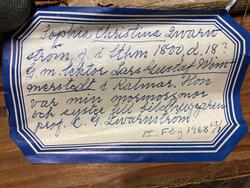 Sophia Christina Qvarn
ström, f. i Sthm 1800 d. 18
G. m. lektor Lars Gustaf Wim
merstedt i Kalmar. Hon
var min mormorsmor
och syster till bildhuggaren
prof. C. G. Qvarnström.
E. Flg 1968